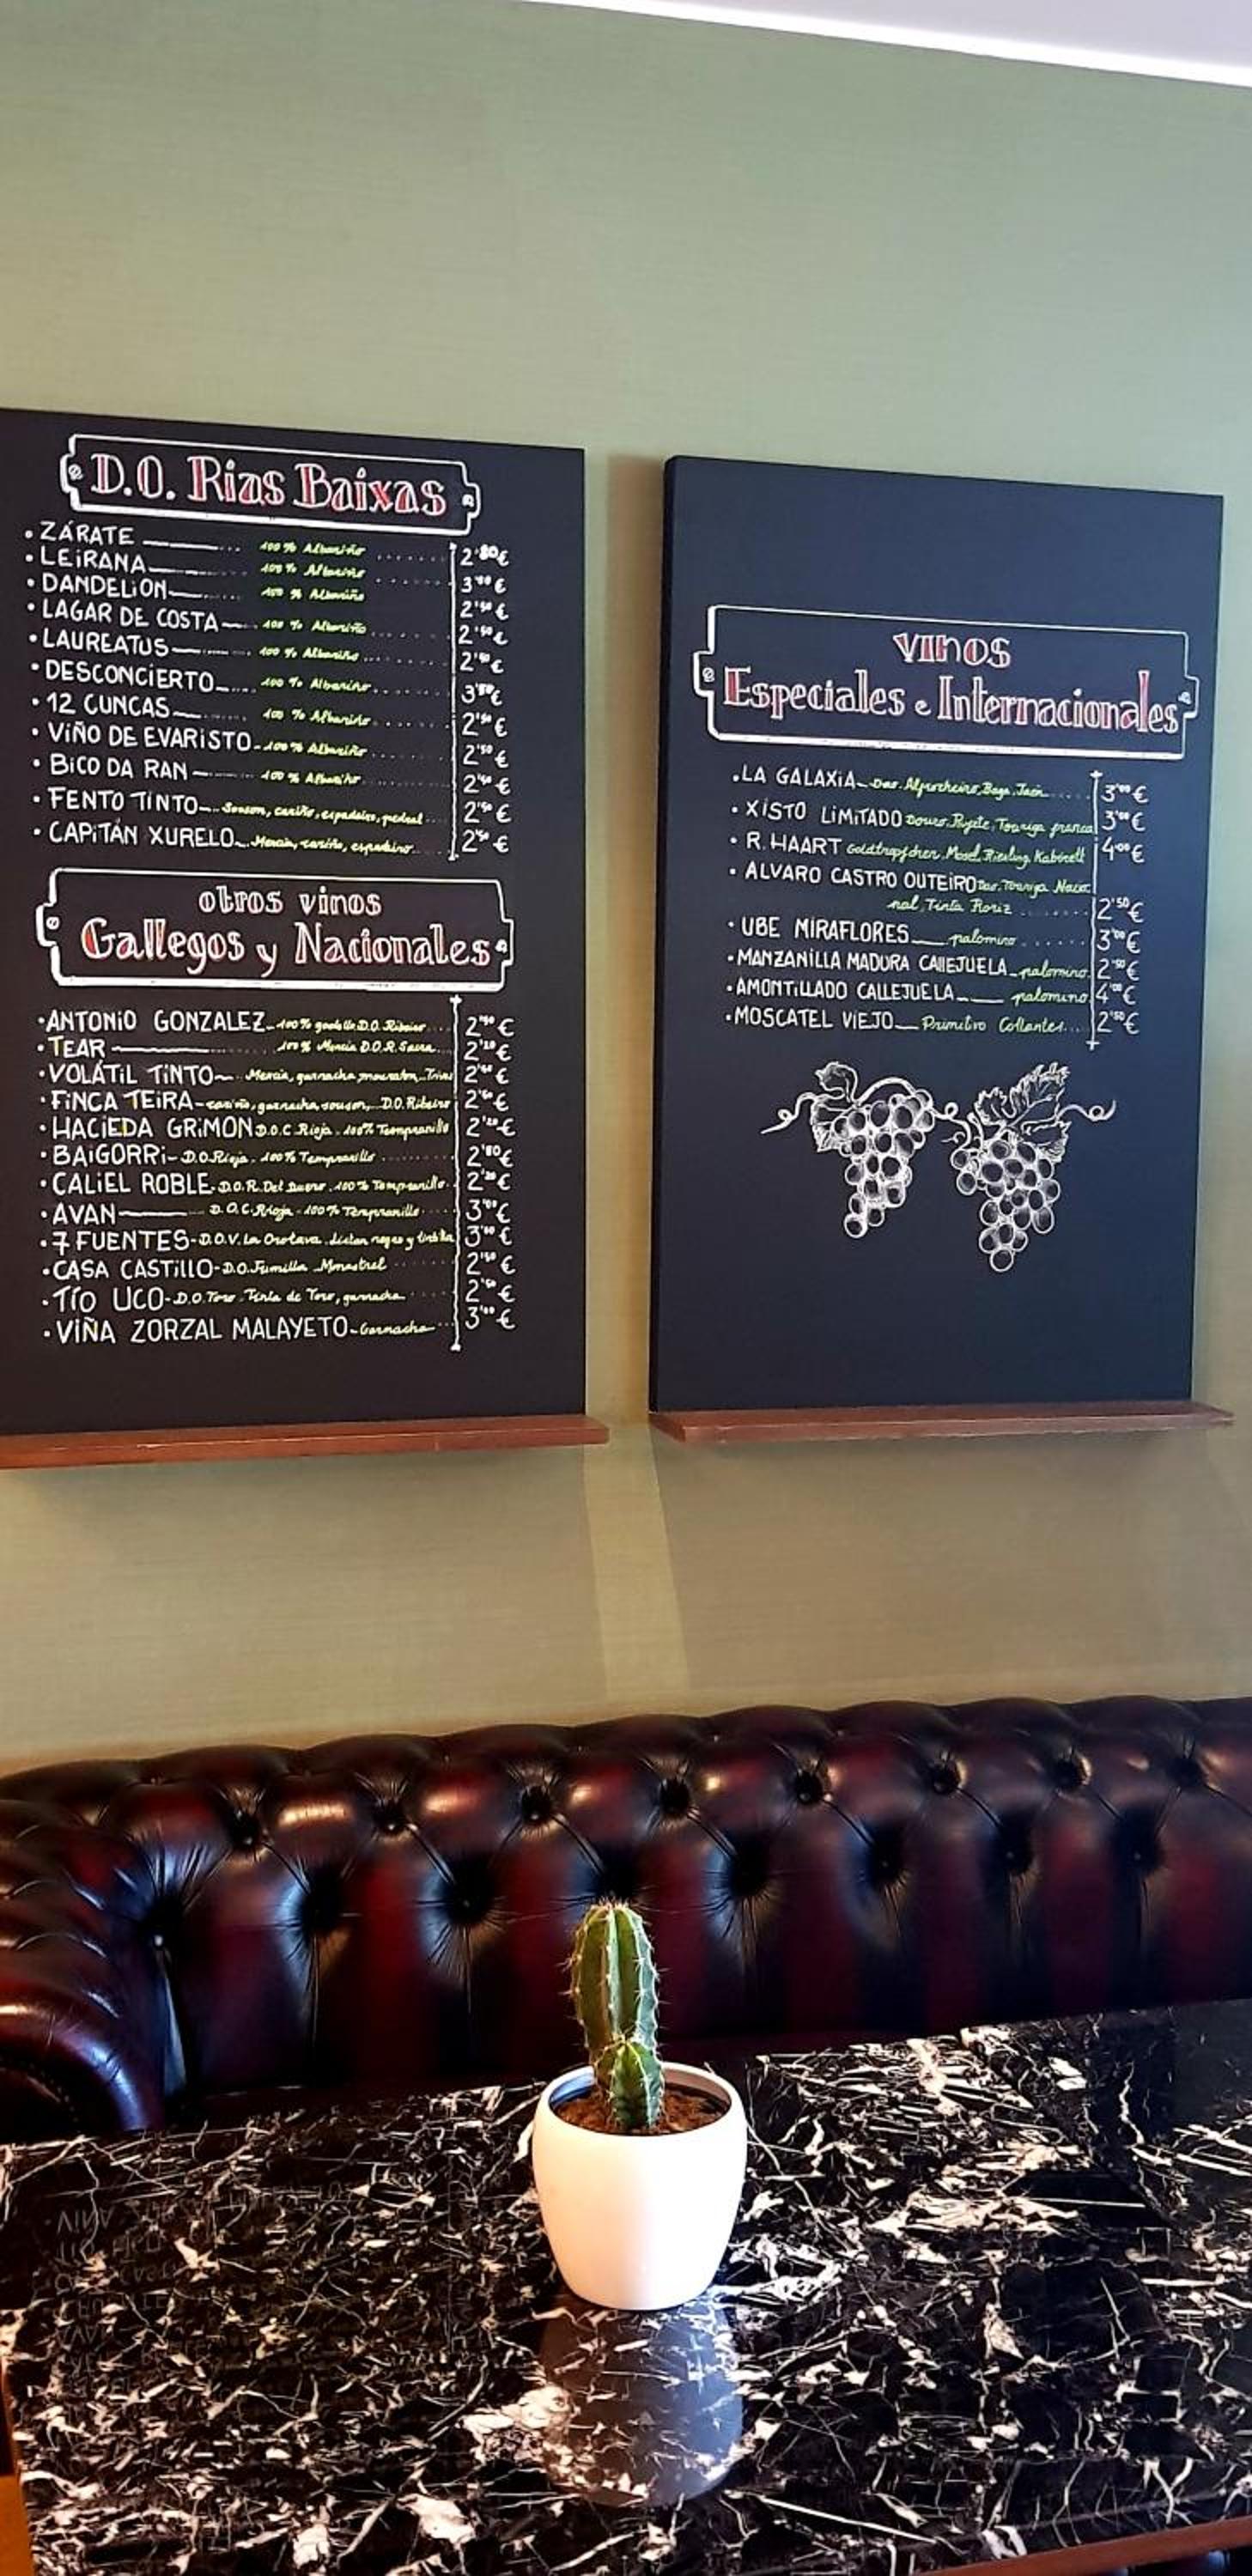 D.O. Rias Baixas
• ZÁRATE 100 % Albariño 2'80€
• LEIRANA 100 % Albariño €
• DANDELION 100 % Albariño 2'50€
• LAGAR DE COSTA 100 % Albariño 2'50€
• LAUREATUS 100 % Albariño €
• DESCONCIERTO 100 % Albariño €
• 12 CUNCAS 100 % Albariño 2'50€
• VIÑO DE EVARISTO 100 % Albariño 2'50€
• BICO DA RAN 100 % Albariño €
• FENTO TINTO Souson, caniño, espadeiro, pedral 2'50€
• CAPITÁN XURELO Mencia, caniño, espadeiro €
otros vinos
Gallegos y Nacionales
• ANTONIO GONZALEZ 100% godello D.O. Ribeiro €
• TEAR 100% Mencia D.O.R. Sacra €
• VOLÁTIL TINTO Mencia, garnacha €
• FINCA TEIRA caiño, garnacha, souson, D.O. Ribeiro €
• HACIEDA GRIMON D.O.C Rioja 100% Tempranillo 2'20€
• BAIGORRI D.O Rioja 100% Tempranillo 2'80€
• CALIEL ROBLE D.O.R. Del Duero 100% Tempranillo €
• AVAN D.O.C. Rioja 100% Tempranillo 3'00€
• 7 FUENTES D.O.V. La Orotava listan negro y tintilla €
• CASA CASTILLO D.O. Jumilla Monastrel 2'50€
• TÍO UCO D.O. Toro Tinta de Toro, garnacha 2'50€
• VIÑA ZORZAL MALAYETO Garnacha 3'00€
vinos
Especiales e Internacionales
• LA GALAXIA Dao. Alfrocheiro, Baga, Jaén 3'00€
• XISTO LIMITADO Douro. Rufete, Touriga franca 3'00€
• R. HAART Goldtropfchen, Mosel, Riesling, Kabinett 4'00€
• ALVARO CASTRO OUTEIRO Dao. Touriga Nacio
nal, Tinta Roriz 2'50€
• UBE MIRAFLORES palomino 3'00€
• MANZANILLA MADURA CALLEJUELA palomino 2'50€
• AMONTILLADO CALLEJUELA palomino 4'00€
• MOSCATEL VIEJO Primitivo Collantes 2'50€